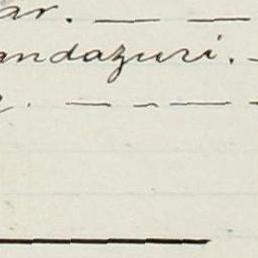 ar. — —
andazuri. -
. — - — —